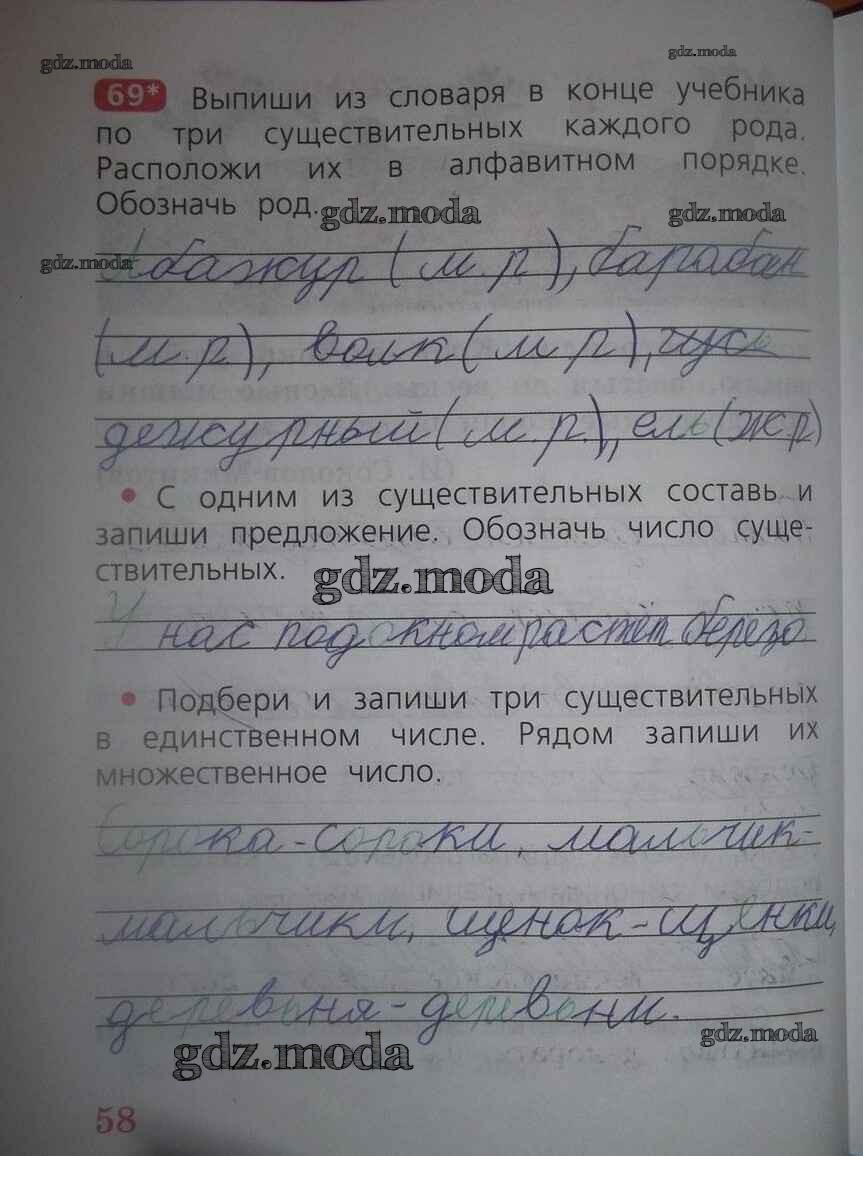 gdz.moda
gdz.moda
69* Выпиши из словаря в конце учебника
по три существительных каждого рода.
Расположи их в алфавитном порядке.
Обозначь род.
gdz.moda
gdz.moda
gdz.moda
Абажур (м.р), барабан
(м.р), волк (м р), гусь
дежурный (м.р.), ель (ж.р)
• С одним из существительных составь и
запиши предложение. Обозначь число суще-
ствительных.
gdz.moda
У нас под окном растёт берёза
• Подбери и запиши три существительных
в единственном числе. Рядом запиши их
множественное число.
Сорока - сороки, мальчик-
мальчики, щенок - щенки,
деревьня - деревьни.
gdz.moda
gdz.moda
58